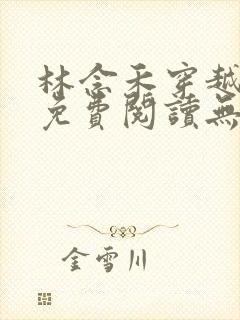 林念禾穿越
免費閱讀無
金雪川